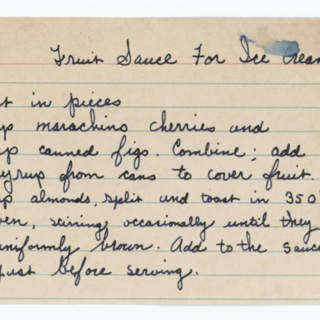 Fruit Sauce For Ice Cream
t in pieces
up maraschino cherries and
up canned figs. Combine; add
yrup from cans to cover fruit.
up almonds, split and toast in 350°
ven, stirring occasionally until they
uniformly brown. Add to the sauce
just before serving.